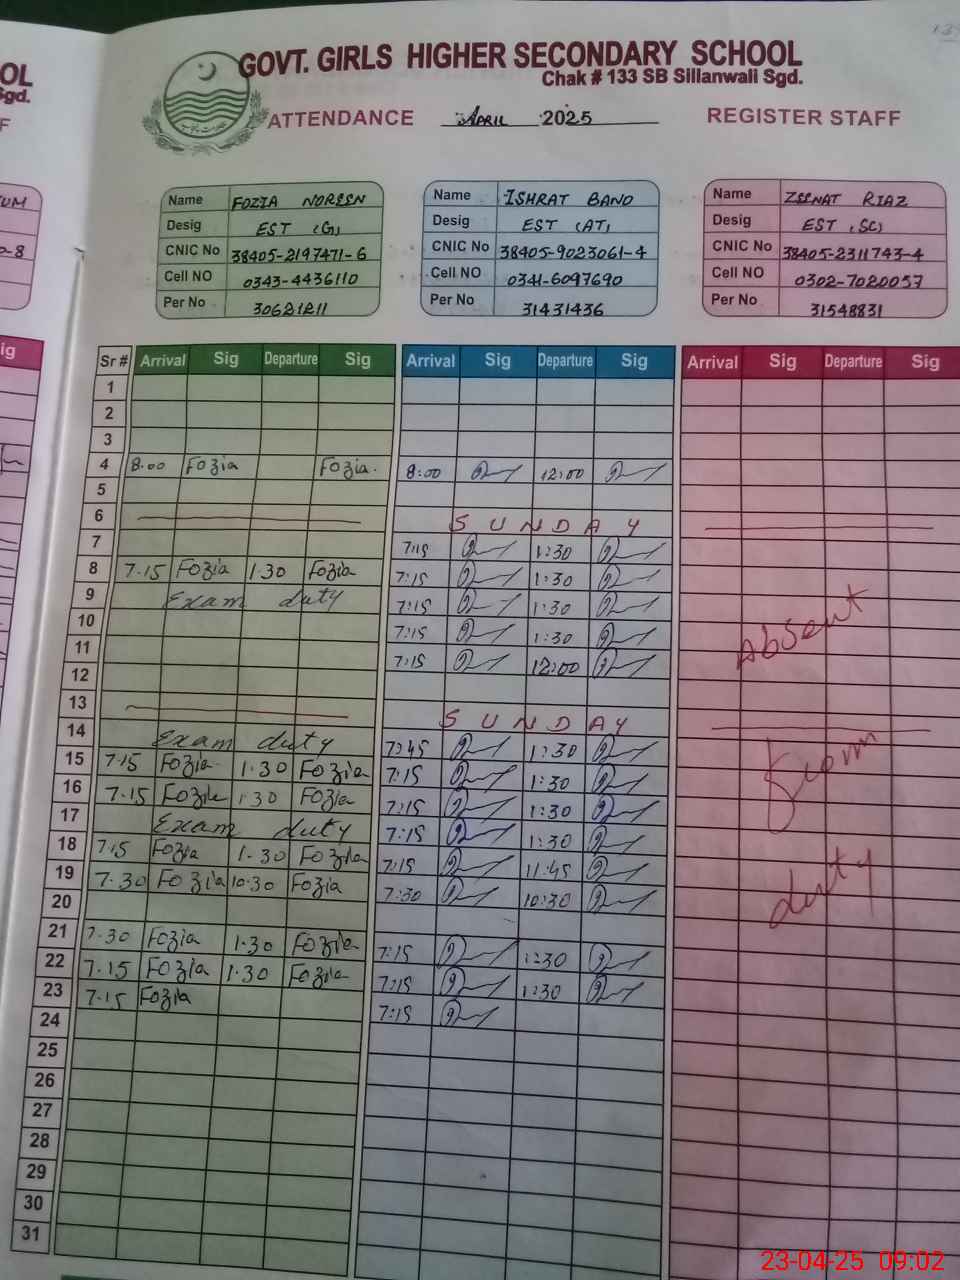 GOVT. GIRLS HIGHER SECONDARY SCHOOL
Chak # 133 SB Sillanwali Sgd.
ATTENDANCE APRIL 2025 REGISTER STAFF
OL
Sgd.
F
UM
0-8
ig
Name FOZIA NOREEN
Desig EST (G)
CNIC No 38405-2197471-6
Cell NO 0343-4436110
Per No 30621211
Name ISHRAT BANO
Desig EST (AT)
CNIC No 38405-9023061-4
Cell NO 0341-6097690
Per No 31431436
Name ZEENAT RIAZ
Desig EST (SC)
CNIC No 38405-2311743-4
Cell NO 0302-7020057
Per No 31548831
Sr # Arrival Sig Departure Sig Arrival Sig Departure Sig Arrival Sig Departure Sig
1
2
3
4 8.00 Fozia Fozia. 8:00 12:00
5
6 SUNDAY
7 7:15 1:30
8 7.15 Fozia 1.30 Fozia 7:15 1:30
9 Exam duty 7:15 1:30
10 7:15 1:30
11 7:15 12:00
12
13 SUNDAY
14 Exam duty 7:45 1:30
15 7.15 Fozia 1.30 Fozia 7:15 1:30
16 7.15 Fozia 1:30 Fozia 7:15 1:30
17 Exam duty 7:15 1:30
18 7.15 Fozia 1.30 Fozia 7:15 11:45
19 7.30 Fozia 10.30 Fozia 7:30 10:30
20
21 7.30 Fozia 1.30 Fozia 7:15 1:30
22 7.15 Fozia 1.30 Fozia 7:15 1:30
23 7.15 Fozia 7:15
24
25
26
27
28
29
30
31
Absent
from
duty
23-04-25 09:02